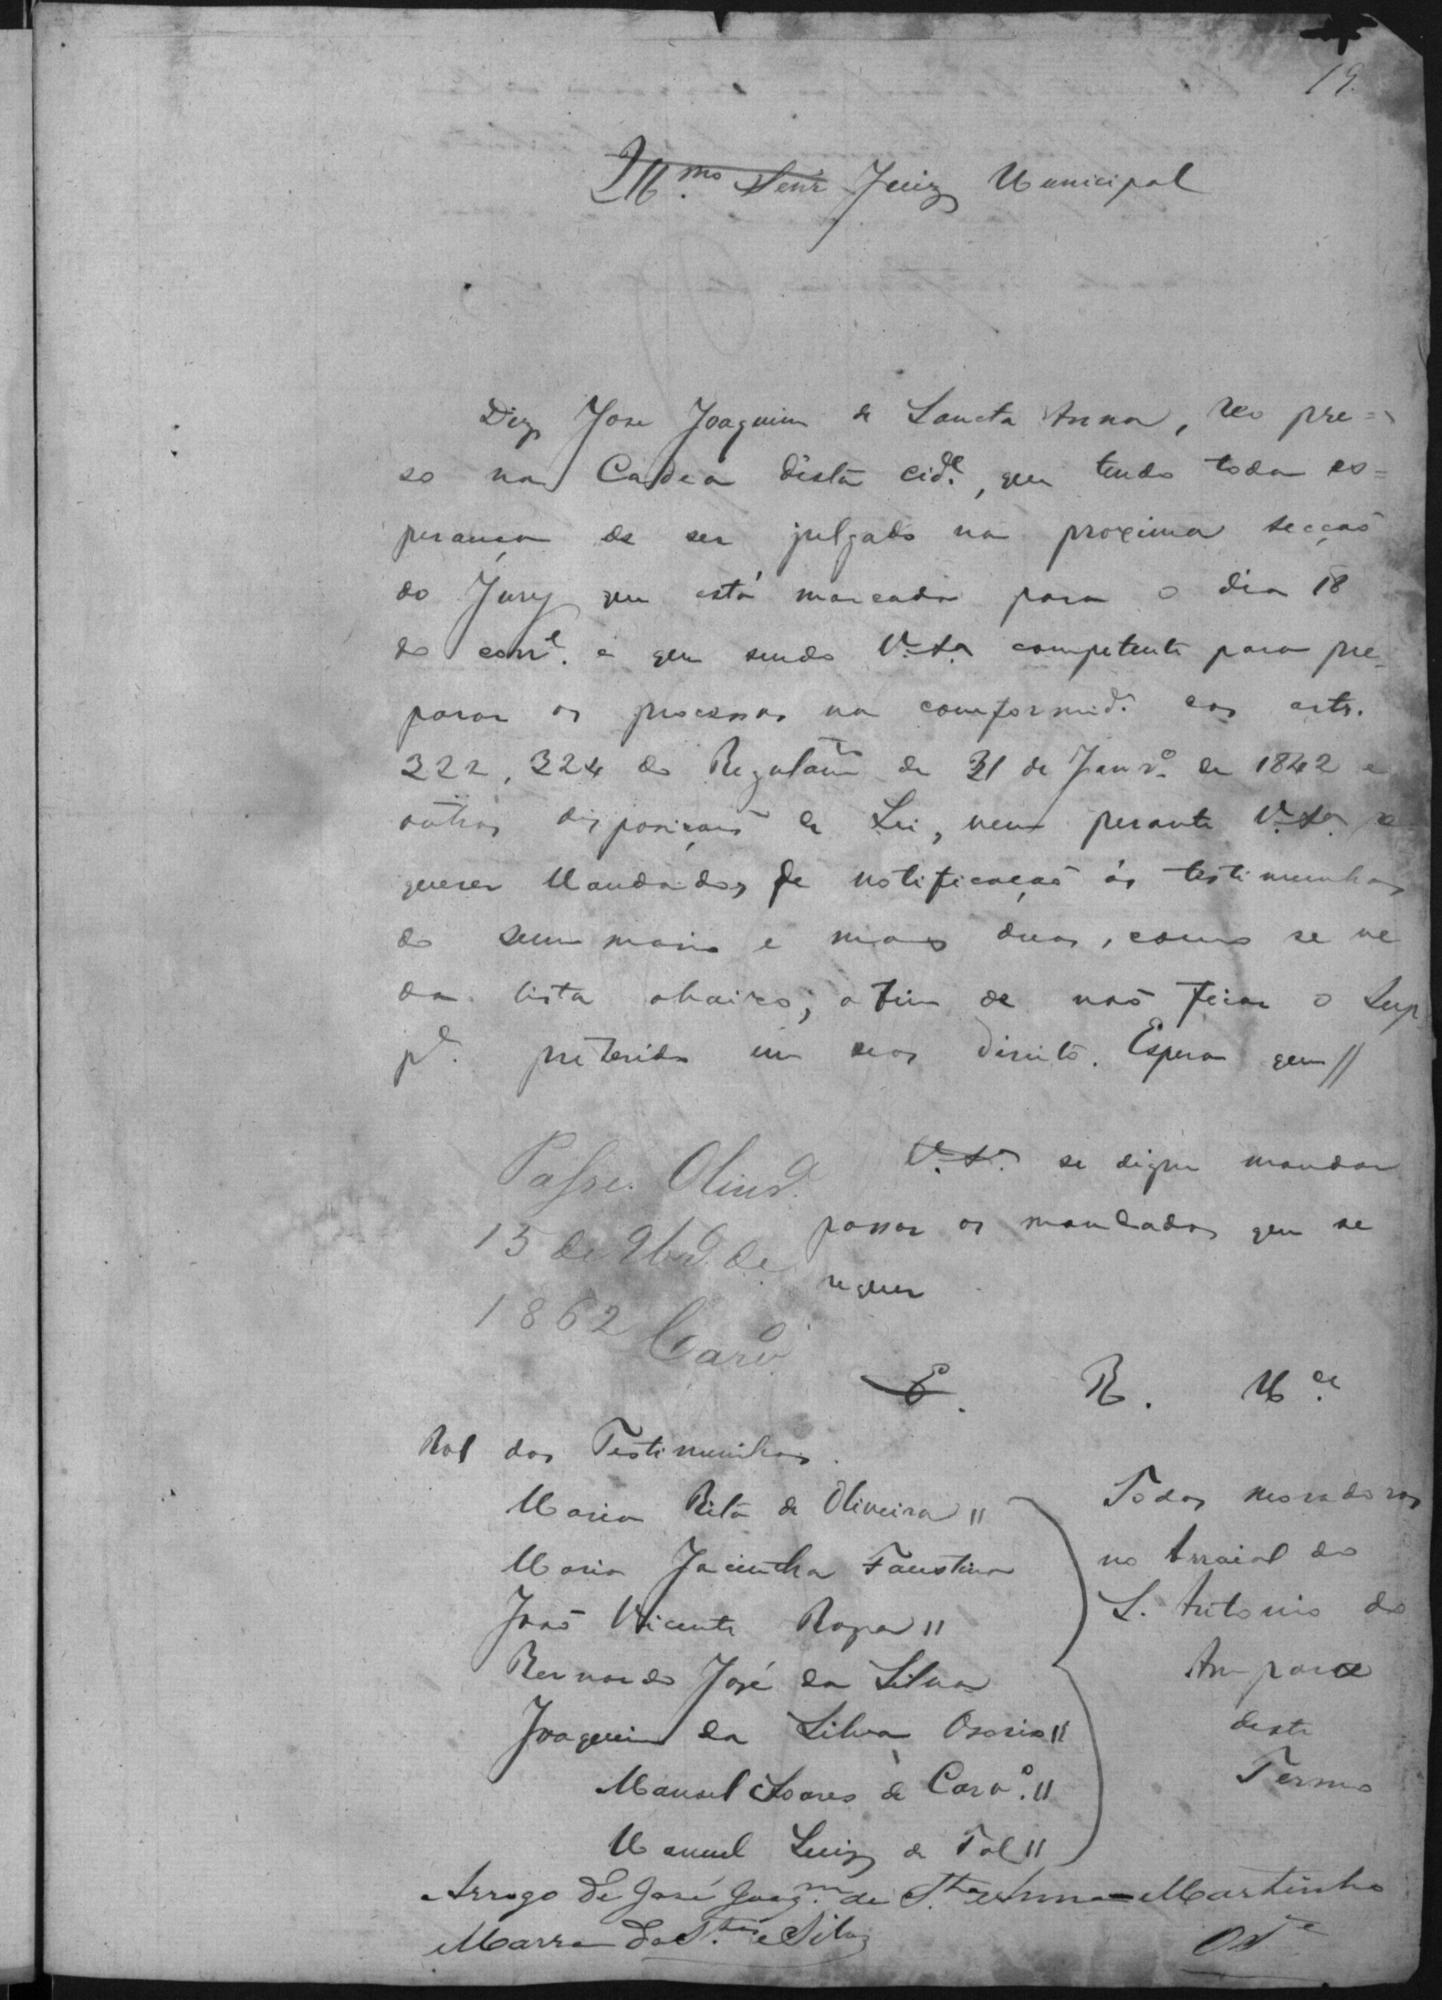 19.
Illmo. Senr. Juiz Municipal
Diz Jose Joaquim de Sancta Anna, reo pre=
so na Cadea desta cide., que tendo toda es=
perança de ser julgado na proxima secçaõ
do Jury que está marcada para o dia 18
do corre. e que sendo V.Sa. competente para pre_
parar os processos na conformide. dos arts.
322, 324 do Regulamto. de 31 de Janro. de 1842 e
outras disposiçoes de Lei, vem perante V.Sa. re
querer Mandados de notificaçaõ ás testimunhas
do summario e mais duas, como se ve
da lista abaixo; a fim de naõ ficar o Sup
pe. preterido em seos direitos. Espera que //
V.Sa. se digne mandar
passar os mandados que se
requer
Passe. Olivra.
15 de de
1862 Carvo.
E. R. Mce.
Rol das Testimunhas.
Maria Rita de Oliveira //
Maria Jacintha Faustina
Joaõ Vicente //
Bernardo José da Silva
Joaquim da Silva Osorio //
Manoel Soares de Carvo. //
Manuel Luiz de //
Todos moradores
no Arraial de
S. Antonio do
Amparo
deste
Termo
Arrogo de José Joaqm. de Sta. Anna Martinho
Marra da e Silva